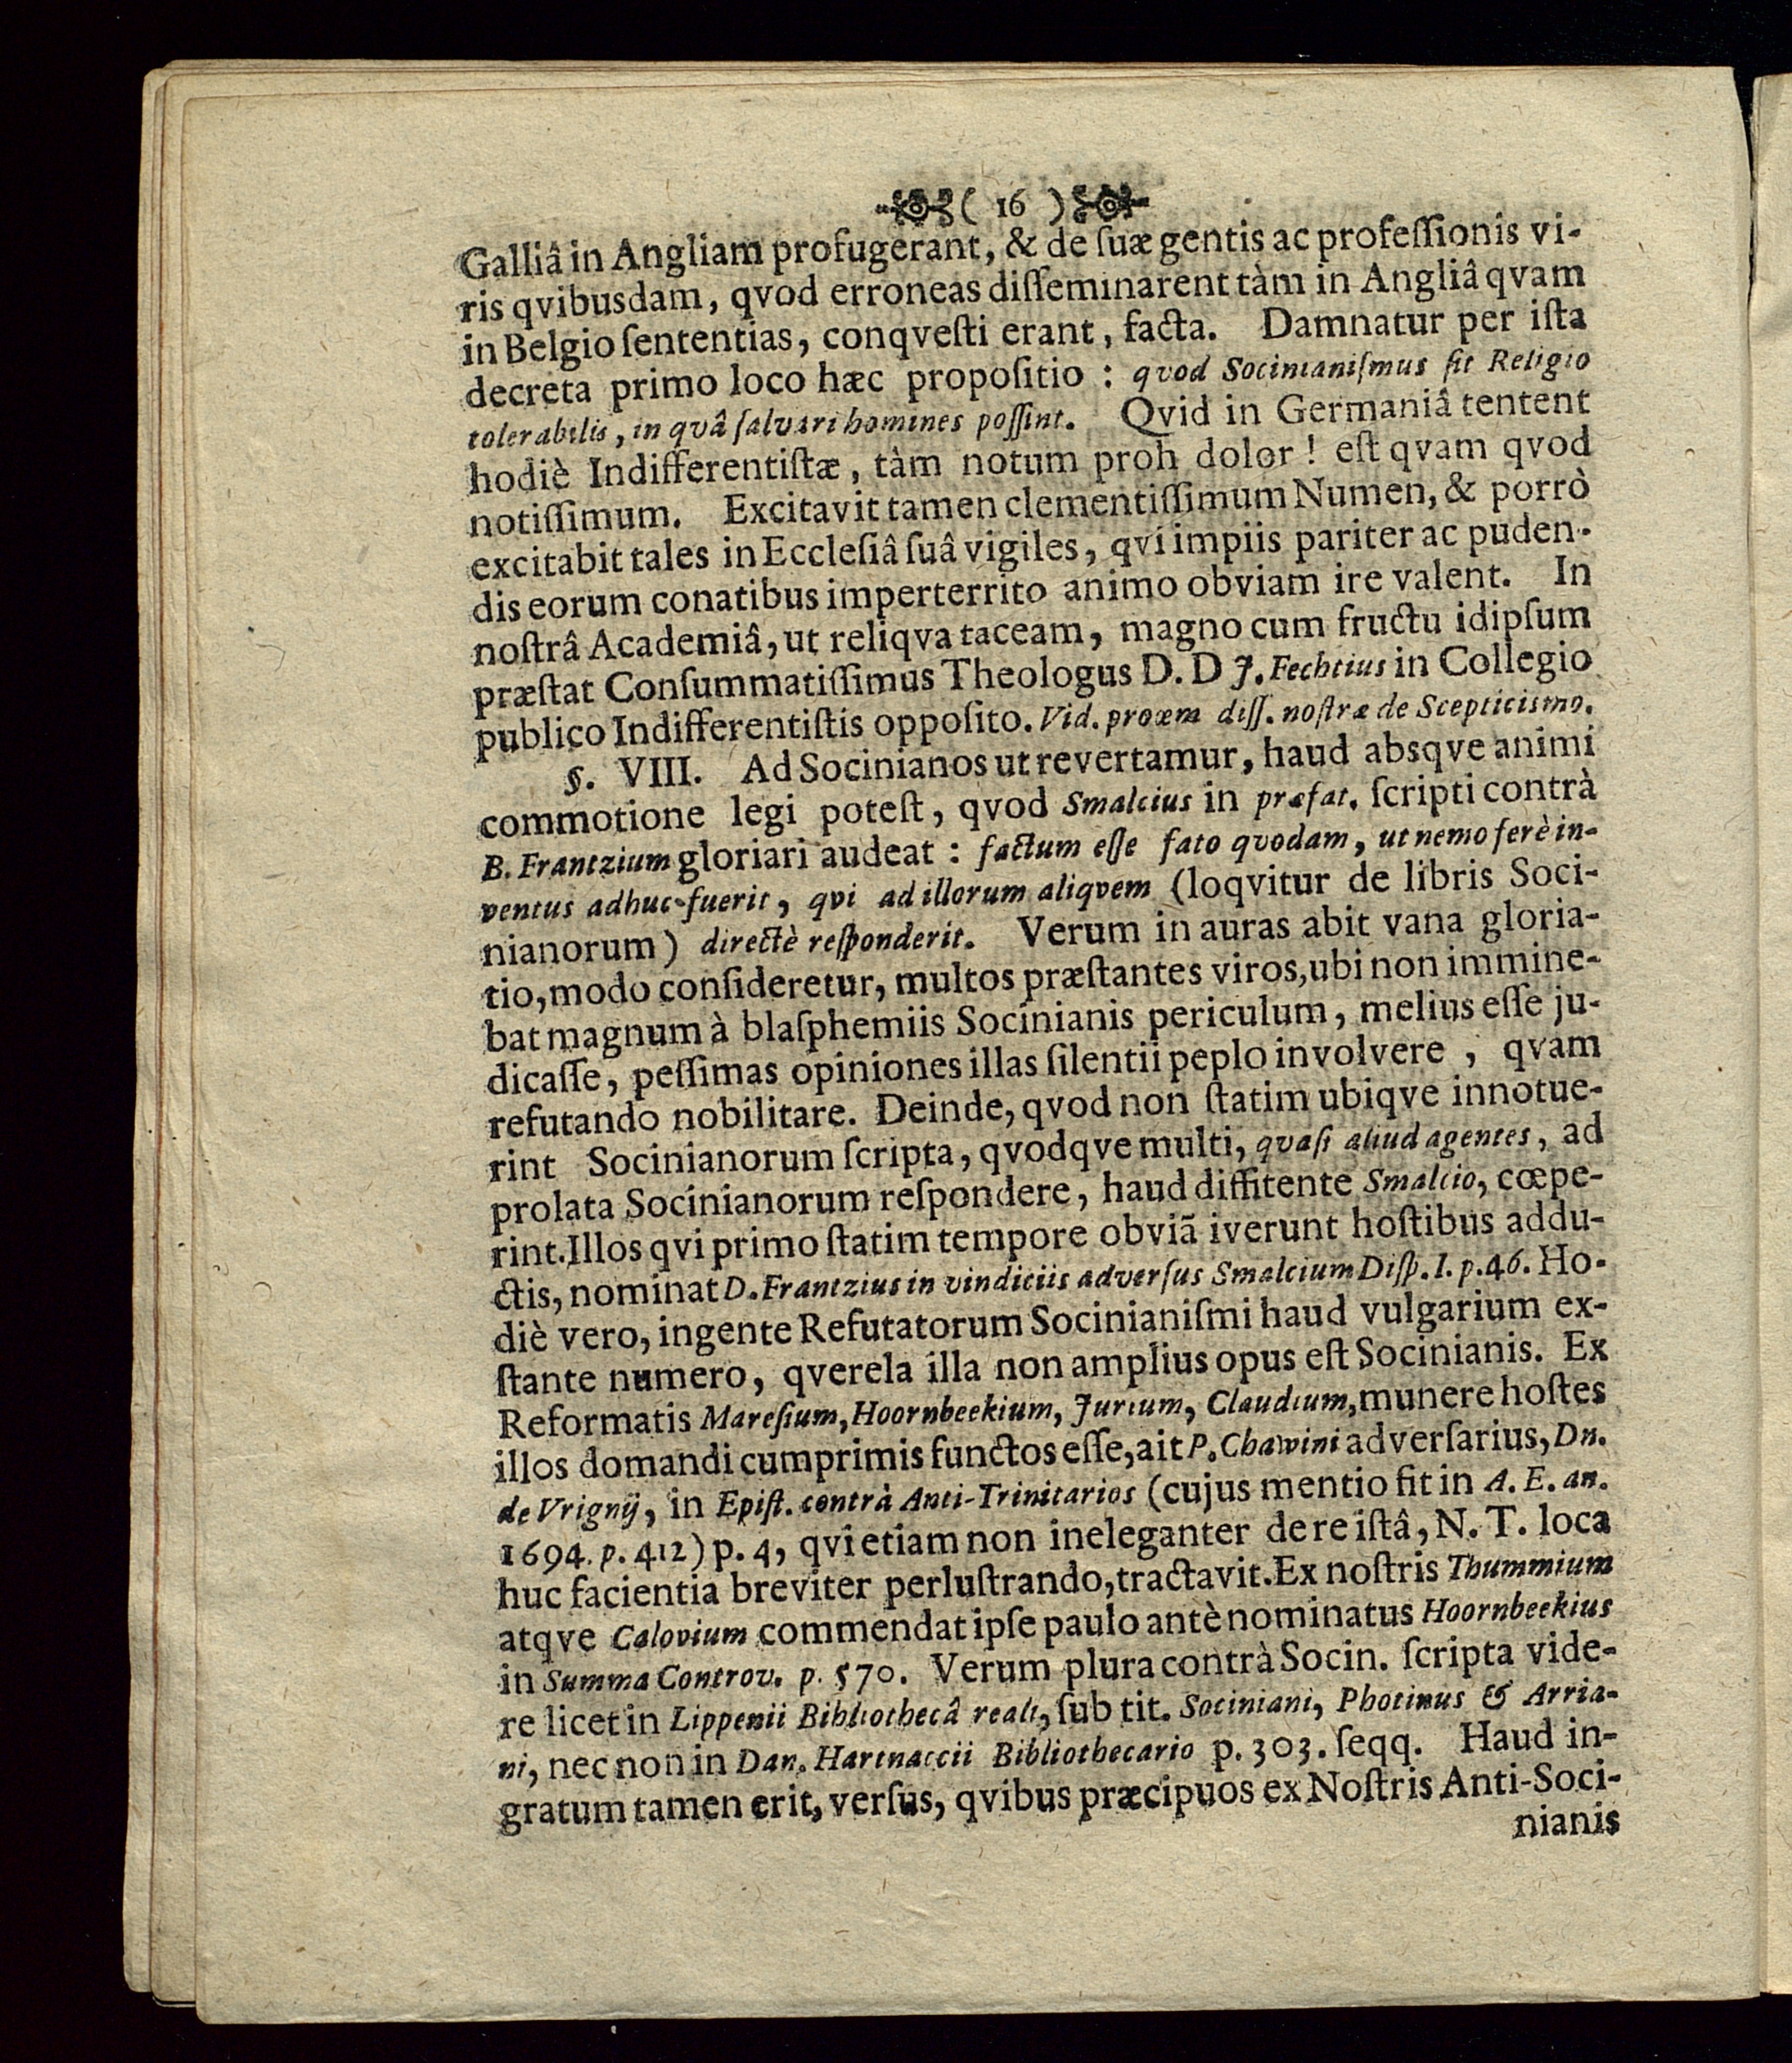 ( 16 )
Galliâ in Angliam profugerant, & de ſuæ gentis ac profeſſionis vi-
ris qvibusdam, qvod erroneas diſſeminarent tàm in Angliâ qvam
in Belgio ſententias, conqveſti erant, facta. Damnatur per iſta
decreta primo loco hæc propoſitio : qvod Socinianiſmus ſit Religio
tolerabilis, in qvâ ſalvari homines poſſint. Qvid in Germaniâ tentent
hodiè Indifferentiſtæ, tàm notum proh dolor ! eſt qvam qvod
notiſſimum. Excitavit tamen clementiſſimum Numen, & porrò
excitabit tales in Eccleſiâ ſuâ vigiles, qvi impiis pariter ac puden-
dis eorum conatibus imperterrito animo obviam ire valent. In
noſtrâ Academiâ, ut reliqva taceam, magno cum fructu idipſum
præſtat Conſummatiſſimus Theologus D. D J. Fechtius in Collegio
publico Indifferentiſtis oppoſito. Vid. proœm diſſ. noſtræ de Scepticismo.
§. VIII. Ad Socinianos ut revertamur, haud absqve animi
commotione legi poteſt, qvod Smalcius in præfat. ſcripti contrà
B. Frantzium gloriari audeat : factum eſſe fato qvodam, ut nemo ferè in-
ventus adhuc fuerit, qvi ad illorum aliqvem (loqvitur de libris Soci-
nianorum) directè reſponderit. Verum in auras abit vana gloria-
tio, modo conſideretur, multos præſtantes viros, ubi non immine-
bat magnum à blaſphemiis Socinianis periculum, melius eſſe ju-
dicaſſe, peſſimas opiniones illas ſilentii peplo involvere, qvam
refutando nobilitare. Deinde, qvod non ſtatim ubiqve innotue-
rint Socinianorum ſcripta, qvodqve multi, qvaſi aliud agentes, ad
prolata Socinianorum reſpondere, haud diffitente Smalcio, cœpe-
rint. Illos qvi primo ſtatim tempore obviã iverunt hoſtibus addu-
ctis, nominat D. Frantzius in vindiciis adverſus Smalcium Diſp. I. p. 46. Ho-
diè vero, ingente Refutatorum Socinianiſmi haud vulgarium ex-
ſtante numero, qverela illa non amplius opus eſt Socinianis. Ex
Reformatis Mareſium, Hoornbeekium, Jurium, Claudium, munere hoſtes
illos domandi cumprimis functos eſſe, ait P. Chawini adverſarius, Dn.
de Vrignÿ, in Epiſt. contrà Anti-Trinitarios (cujus mentio fit in A. E. an.
1694. p. 412) p. 4, qvi etiam non ineleganter de re iſtâ, N. T. loca
huc facientia breviter perluſtrando, tractavit. Ex noſtris Thummium
atqve Calovium commendat ipſe paulo antè nominatus Hoornbeekius
in Summa Controv. p. 570. Verum plura contrà Socin. ſcripta vide-
re licet in Lippenii Bibliothecâ reali, ſub tit. Sociniani, Photinus & Arria-
ni, nec non in Dan. Hartnaccii Bibliothecario p. 303. ſeqq. Haud in-
gratum tamen erit, verſus, qvibus præcipuos ex Noſtris Anti-Soci-
nianis